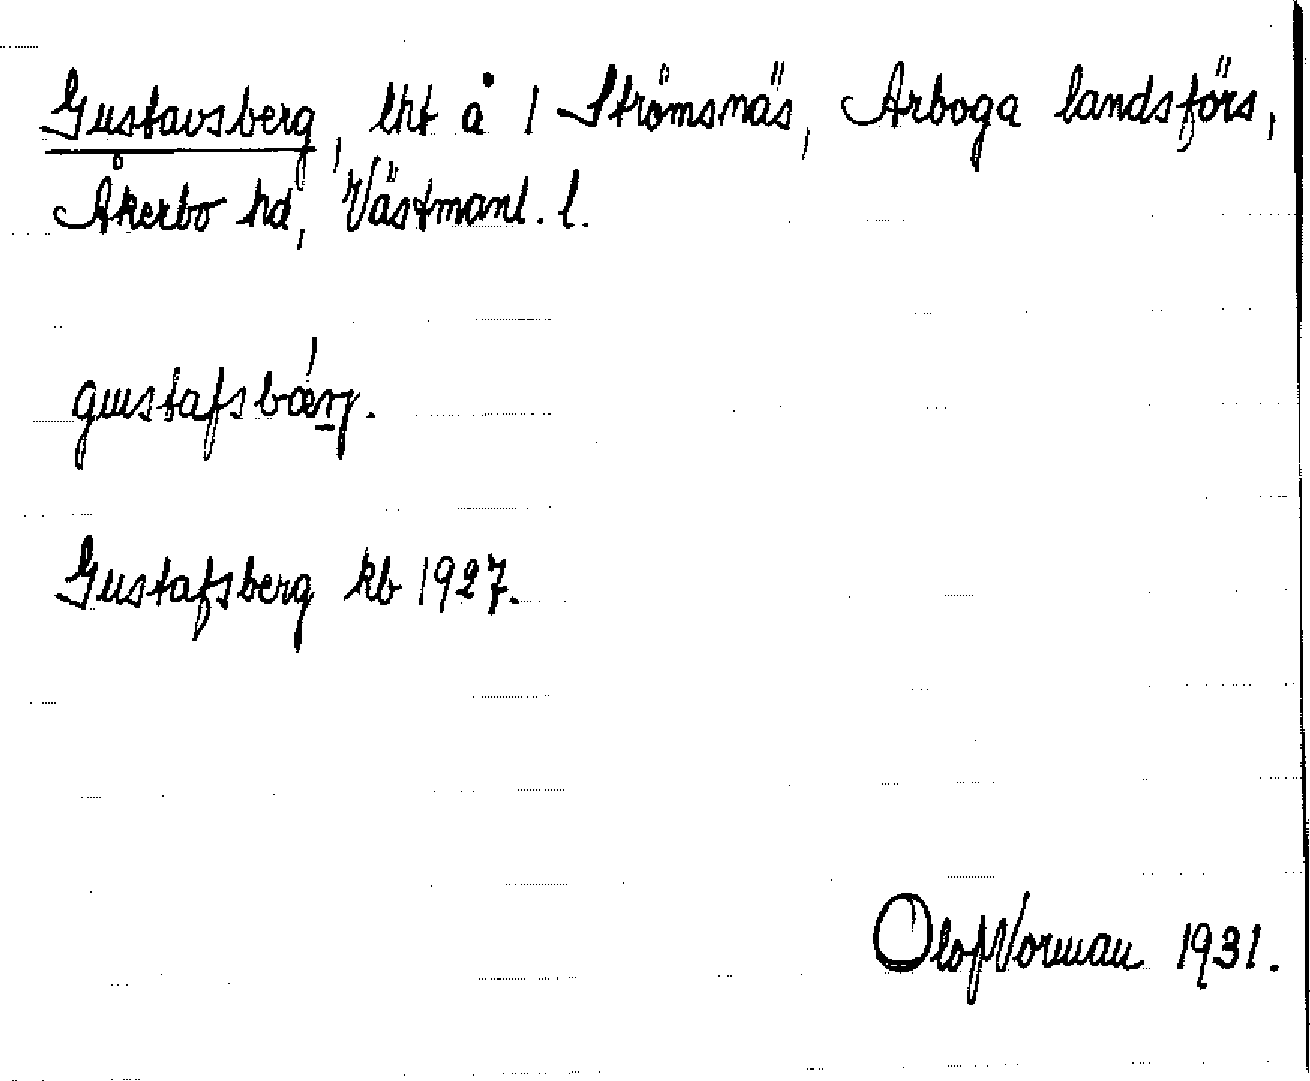 Gustavsberg, lht å 1 Strömsnäs, Arboga landsförs,
Åkerbo hd, Västmanl. l.
gustafsbærj.
Gustafsberg kb 1927.
Olof Norman 1931.